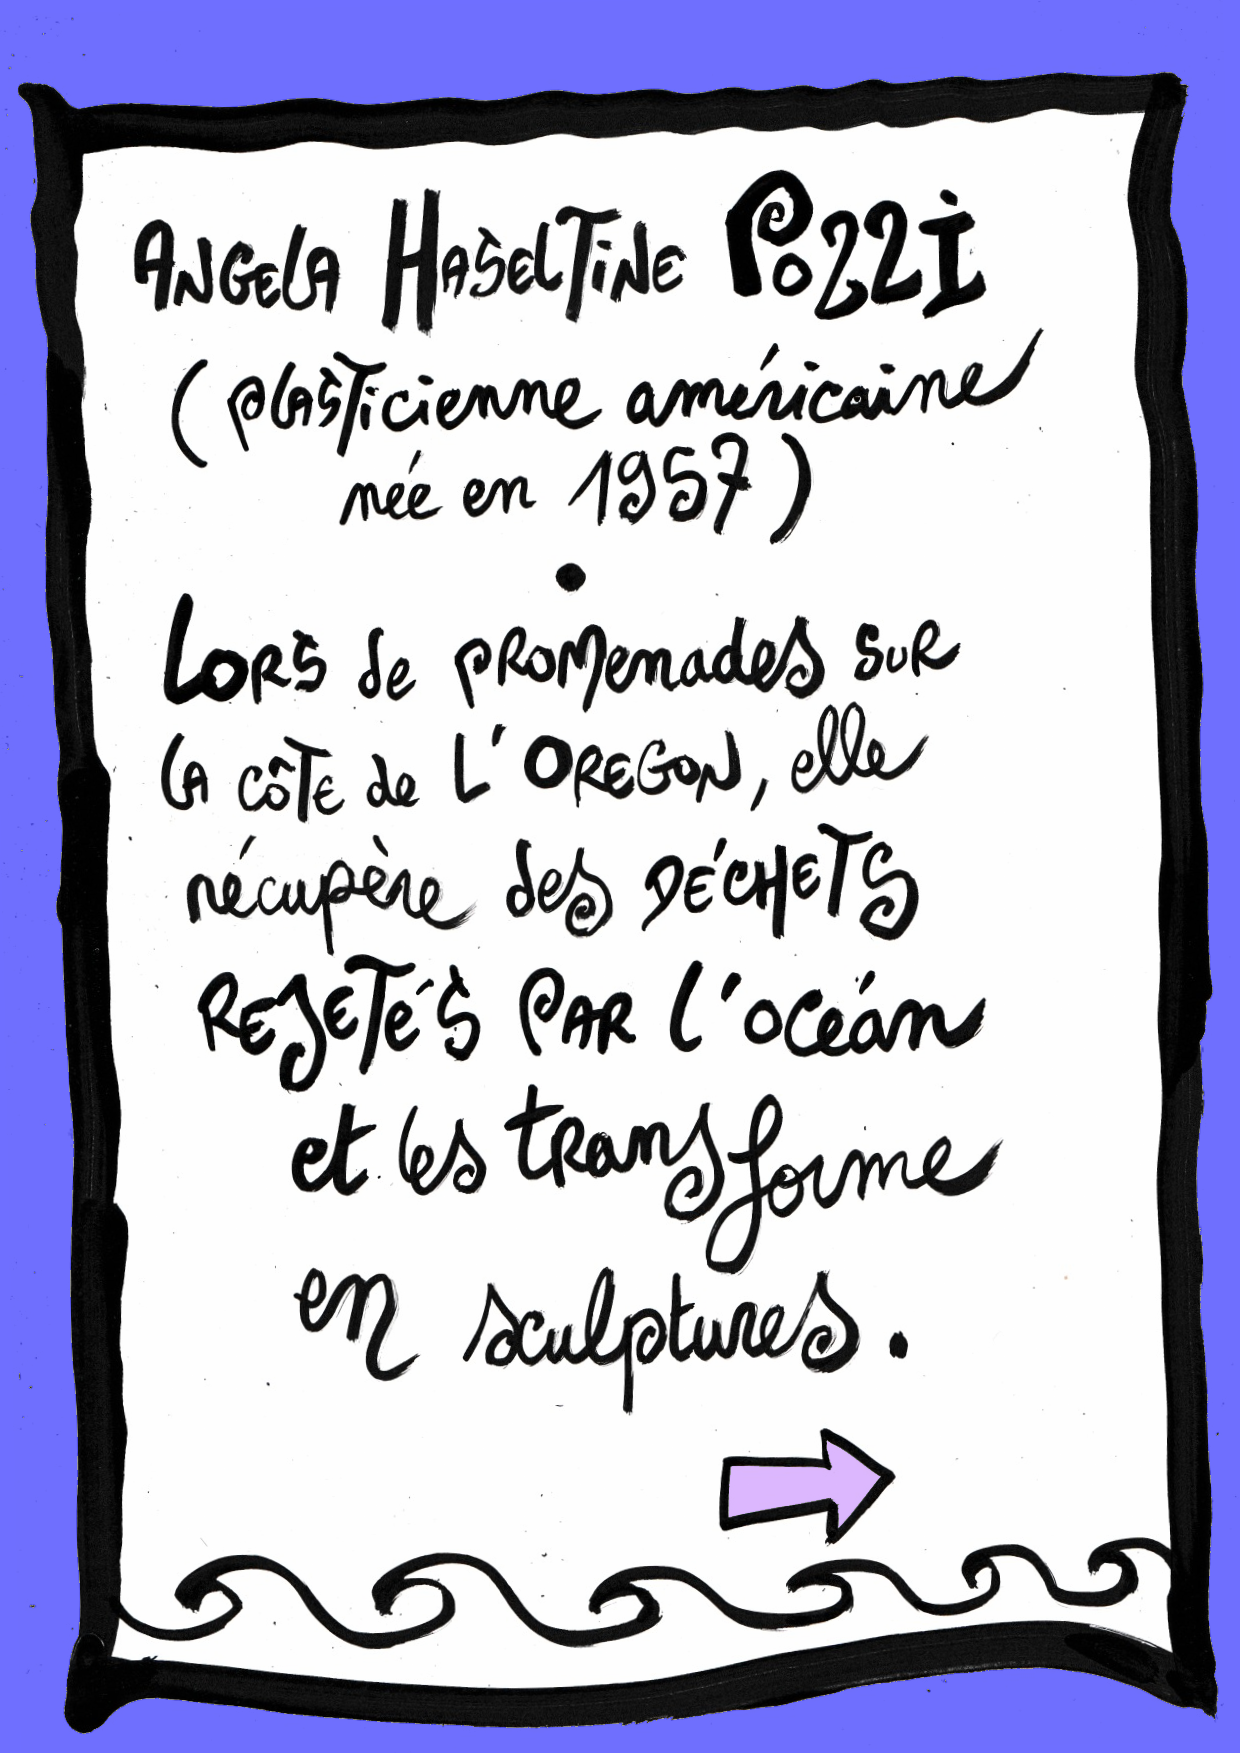 ANGELA HASELTINE POZZI
(plasticienne américaine
née en 1957)
•
LORS de promenades sur
la côte de L'OREGON, elle
récupère des DÉCHETS
REJETÉS PAR l'océan
et les transforme
en sculptures.